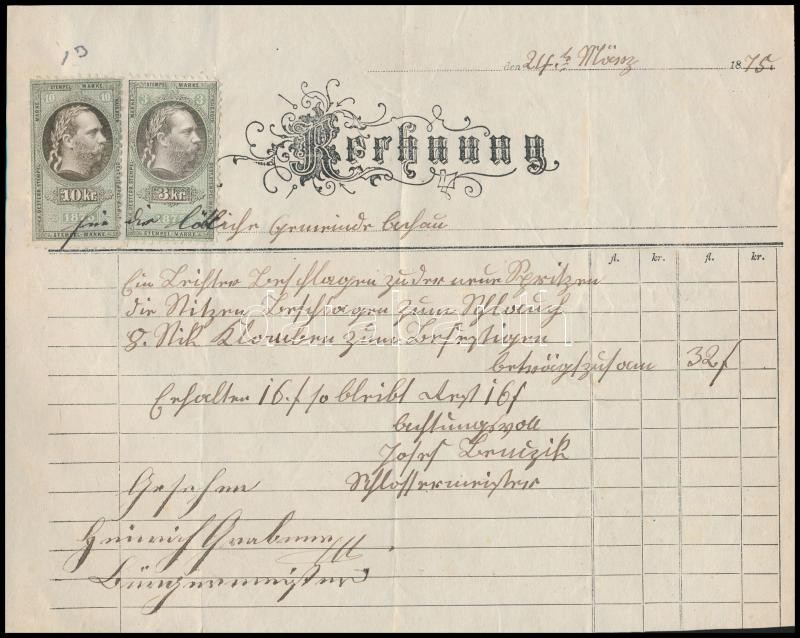 den 24.te März 1875.
STEMPEL MARKE
10 10
10 kr.
STEMPEL-MARKE
STEMPEL MARKE
3 3
3 kr.
STEMPEL-MARKE
Rechnung
für die löbliche Gemeinde
fl. kr. fl. kr.
Ein Leichter Beschlagen zu der neue Spritzen
die Sitzen Beschlagen zum Schlauch
8. Stik Klamben zum Befestigen
beträgt zusam 32 f
Erhalten 16. f so bleibt Rest 16 f
Achtungsvoll
Josef
Schlossermeister
Gesehen
Heinrich
Bürgermeister